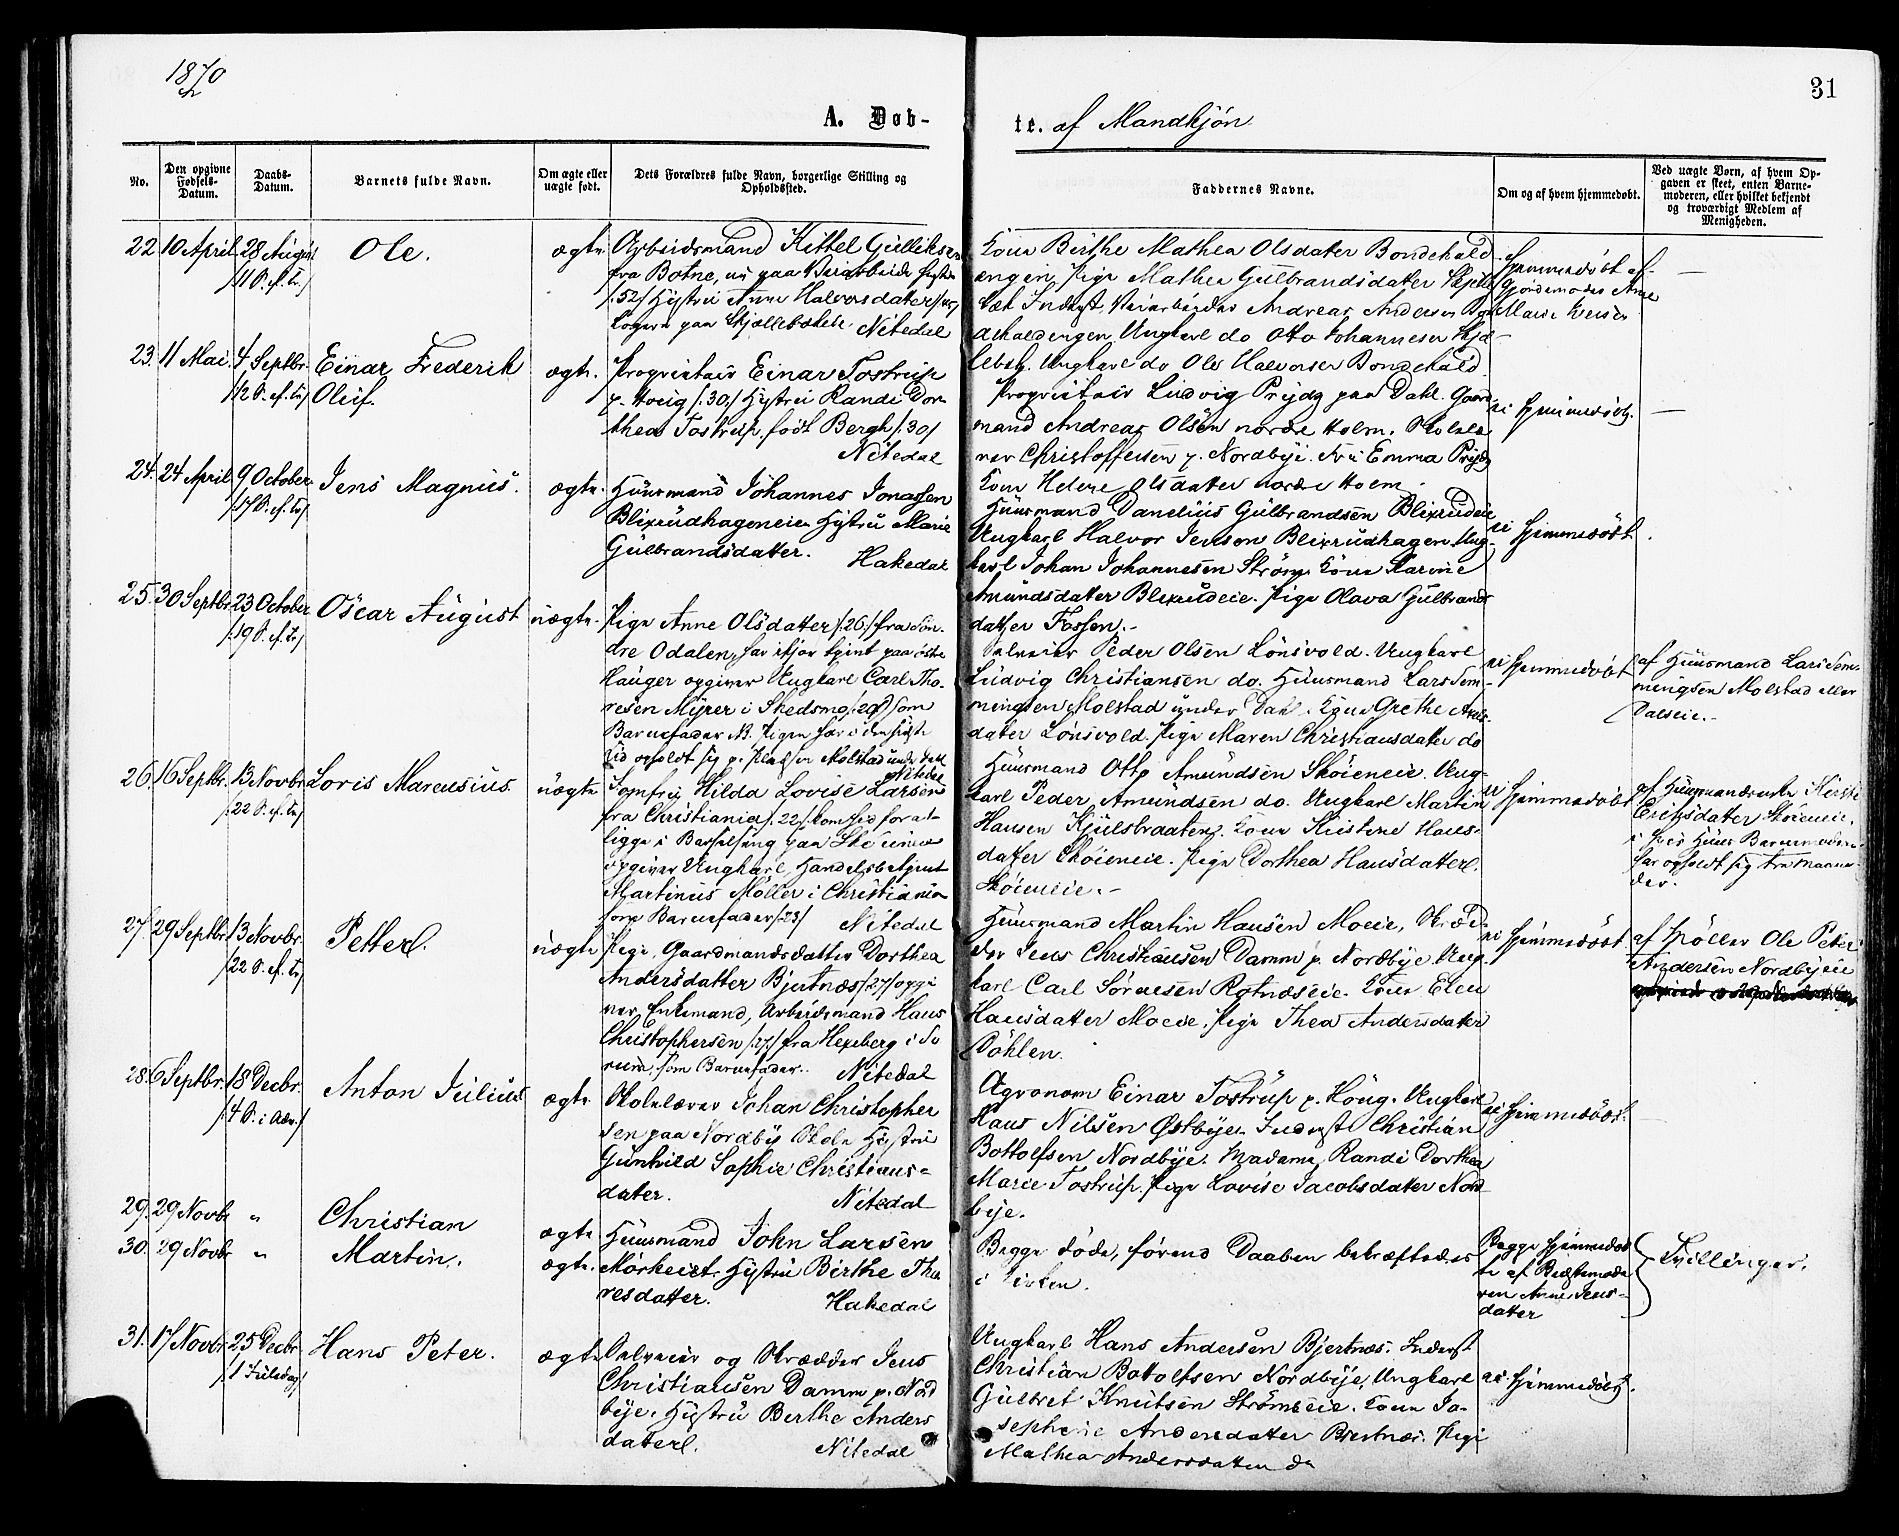 1870
31
A. Døb-
te. af Mandkjøn
No.
Den opgivne Fødsels-Datum.
Daabs-Datum.
Barnets fulde Navn.
Om ægte eller uægte født.
Dets Forældres fulde Navn, borgerlige Stilling og Opholdssted.
Faddernes Navne.
Om og af hvem hjemmedøbt.
Ved uægte Børn, af hvem Opgaven er skeet, enten Barnemoderen, eller hvilket bekjendt og troværdigt Medlem af Menigheden.
22 10 April 28 August
/11 S. ef. Tr./
Ole.
ægte
Arbeidsmand Kittel Gulliksen
fra Botne,
/:52/ Hustru Anne Halvorsdatter
Logere paa Skjællebækeie. Nitedal
Kone Birthe Mathea Olsdater Bondehald
engen, Pige Mathea Gulbrandsdater Skjelle
bæk Inderst, Andreas Andersen
dehaldengen Ungkarl do Otto Johannesen Skjæ
lebek. Ungkarl do Ole Halvorsen Bondehald
hjemmedøbt af
Gjordemoder Anne
Marie Iversen
—
23. 11 Mai. 4 Septbr.
/12 S. ef. Tr/
Einar Frederik
Oluf.
ægte.
Proprietair Einar Tostrup
p. Houg /:30/ Hustru Randi Dor-
thea Tostrup, født Bergh /:30/
Nitedal
Proprietair Ludvig Prydz paa Dahl. Gaard
mand Andreas Olsen nordre Holm. Skolelæ
rer Christoffersen p. Nordbye. Fru Emma Prydz
Kone Helene Olsdatter nordre Holm.
ei hjemmedøbt.
—
24. 24 April 9 October
/17 S. ef. Tr/
Jens Magnus.
ægte.
Huusmand Johannes Jonassen
Blixrudhageneie Hustru Marie
Gulbrandsdatter.
Hakedal
Huusmand Danelius Gulbrandsen Blixrudeie
Ungkarl Halvor Jensen Blixrudhagen. Ung-
karl Johan Johannesen Strøm. Kone Karine
Amundsdatter Blixrudeie. Pige Olava Gulbrands
datter Fossen.-
ei hjemmedøbt.
25. 30 Septbr. 23 October
/:19 S. ef. Tr/
Oscar August
uægte.
Pige Anne Olsdatter /:26:/ fra Søn-
dre Odalen, har tjent paa
Hauger opgiver Ungkarl Carl Tho-
resen Myrer i Skedsmo /:29/ som
Barnefader NB. Pigen har i den sidste
Tid opholdt sig p. Pladsen Molstad under Dahl
Nitedal
Peder Olsen Lønsvold. Ungkarl
Ludvig Christiansen do. Huusmand Lars Tem-
mingsen Molstad under Dahl. Kone Grethe
dater Lønsvold. Pige Maren Christiansdater do
ei hjemmedøbt
af Huusmand Lars Tem-
mingsen Molstad eller
Dalseie.-
26. 16 Septbr. 13 Novbr.
/:22 S. ef. Tr/
Loris Marcusius.
uægte
Jomfru Hilda Lovise Larsen
fra Christiania /:22/ kom hid for at
ligge i Barselseng paa
opgiver Ungkarl, Handelsbetjent
Martinus Møller i Christiania
som Barnefader /:23/ Nitedal
Huusmand Otto Amundsen Skøieneie. Ung-
karl Peder Amundsen do. Ungkarl Martin
Hansen Kjulsbraaten. Kone Kirstine Hans-
datter Skøieneie. Pige Dorthea Hansdatter.
Skøieneie.-
ei hjemmedøbt
af Huusmandsenke Kirsti
Eriksdatter Skøieneie,
i hvis Huus Barnemoderen
har opholdt sig tre Maane
der.
27. 29 Septbr. 13 Novbr.
/:22 S. ef. Tr/
Petter.
uægte
Pige, Gaardmandsdatter Dorthea
Andersdatter Bjertnæs /:27/ opgi
ver Enkemand, Arbeidsmand Hans
Christophersen /:27/ fra Hexeberg i Sø
rum, som Barnefader. Nitedal
Huusmand Martin Hansen Moeie, Skræd
der Jens Christiansen Damm p. Nordbye. Ung-
karl Carl Sørensen Rotnæseie. Kone Elen
Hansdatter Moeie. Pige Thea Andersdater
Døhlen.
ei hjemmedøbt.
af Møller Ole Peter
Andersen Nordbyeeie
28. 6 Septbr. 18 Decbr.
/4 S. i Adv./
Anton Julius
ægte
Skolelærer Johan Christopher
sen paa Nordby Skole Hustru
Gunhild Sophie Christians-
dater.
Nitedal
Agronom Einar Tostrup p. Houg. Ungkarl
Hans Nilsen Østbye. Inderst Christian
Bottolfsen Nordbye. Madame Randi Dorthea
Marie Tostrup. Pige Lovise Jacobsdater Nord
bye.
ei hjemmedøbt.
29. 29 Novbr "
Christian
ægte
30. 29 Novbr "
Martin.
ægte.
Huusmand John Larsen
Mørkeiet Hustru Birthe Tho
resdatter.
Hakedal
Begge døde, førend Daaben bekræftedes
i Kirken.
Begge hjemmedøb
te af Bedstemode
ren Anne Jens-
datter
Tvillinger.
31. 17 Novbr 25 Decbr.
/1 Juledag/
Hans Peter.
ægte
Selveier og Skrædder Jens
Christiansen Damm p. Nord
bye. Hustru Berthe Anders
dater.
Nitedal
Ungkarl Hans Andersen Bjertnæs. Inderst
Christian Bottolfsen Nordbye, Ungkarl
Gulbret Knutsen Strømseie. Kone Jo-
sephine Andersdater Bjertnæs. Pige
Mathea Andersdatter do
ei hjemmedøbt.